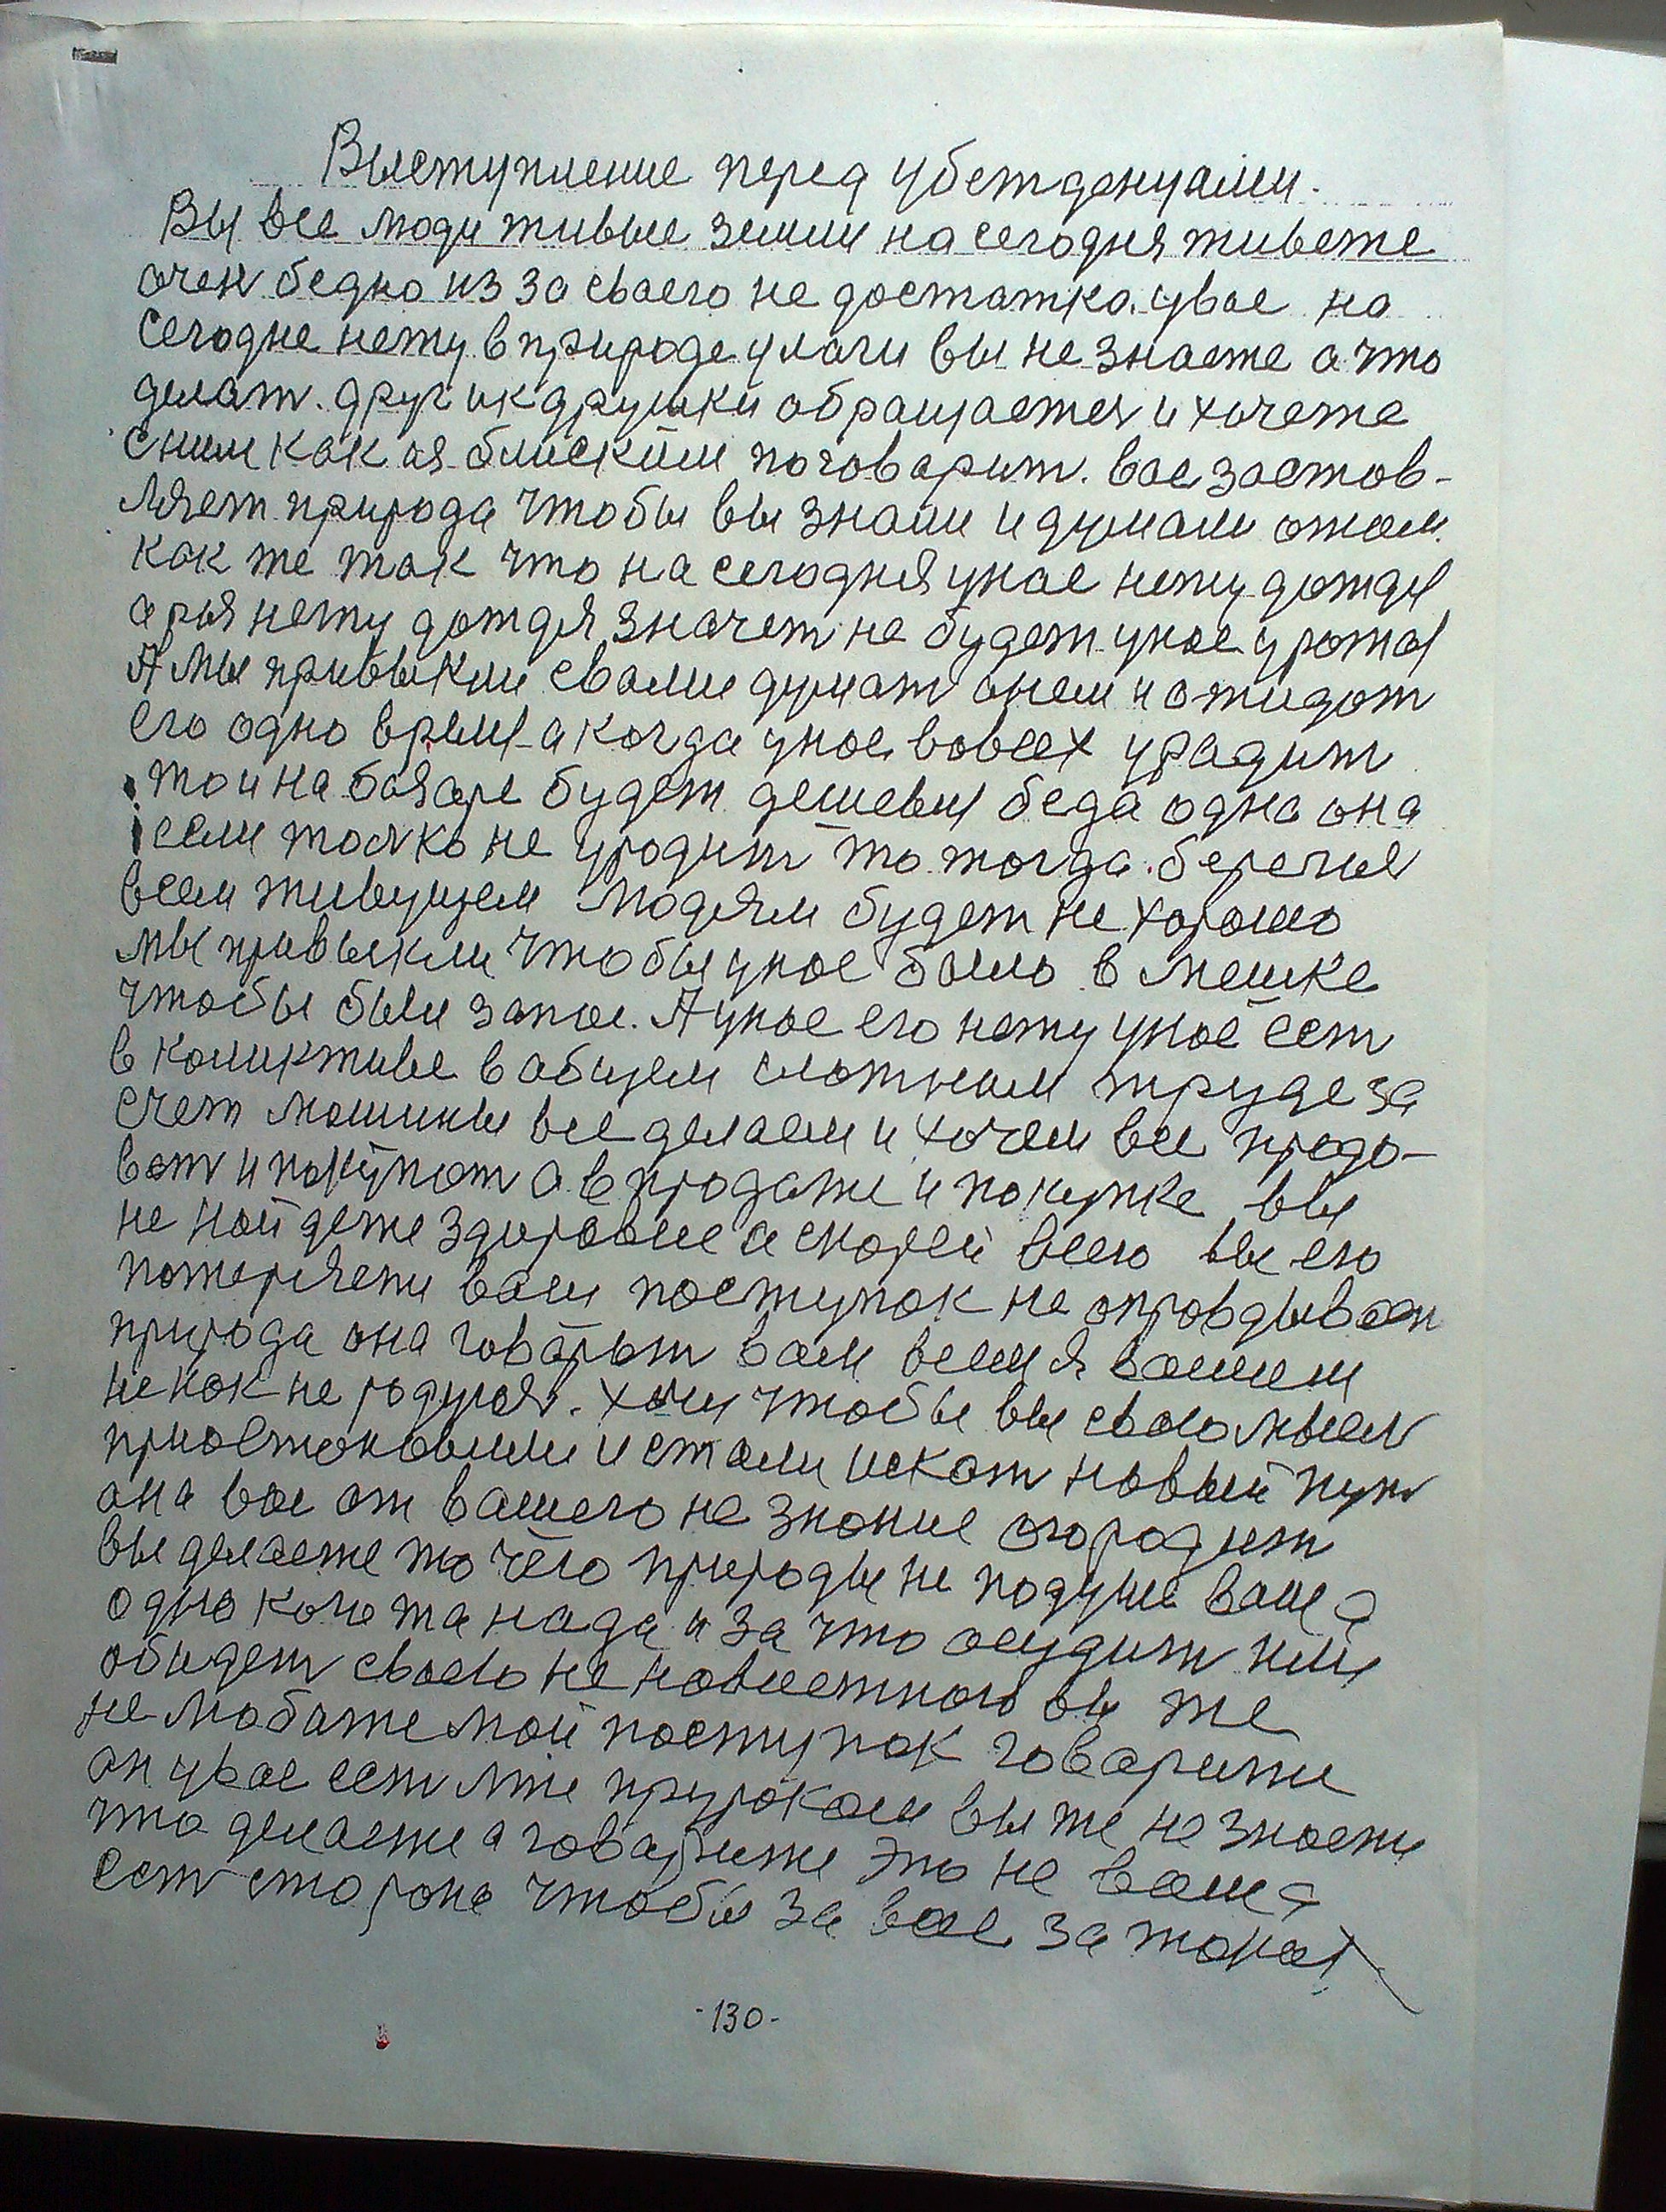 Выступление перед убежденцами.
Вы все люди живые земли на сегодня живете
очен бедно из за своего не достатка. увас на
сегодне нету в природе улаги вы не знаете а что
делат. друг ик друшки обращаетес и хочете
сним как ая блиским поговарит. вас застов-
ляет природа чтобы вы знали и думали отом.
как же так что на сегодня унас нету дождя
нету дождя значет не будет унас урожая
А мы привыкли свами думат онем и ожидат
его одно время а когда унас вовсех урадит
то и на базаре будет дешевы беда одна она
если толко не уродит то тогда беречся
всем живущем людям будет не хорошо
мы привыкли чтобы унас было в мешке
чтобы были запас. А унас его нету унас ест
в коликтиве в абщем сложном труде за
счет машины все делаем и хочем все продо-
ват и покупат а в продаже и покупке вы
не найдете здоровие а скорей всего вы его
потеряети ваш поступок не оправдывает
природа она говарыт вам всем я вашим
некак не радуюся. хочу чтобы вы свою мысл
приостоновили и стали искат новый пут
она вас от вашего не знание огородит
вы делаете то чего природы не подуше ваша
одно кого та нада и за что осудит или
обидет своею не новистного вы же
не любите мой поступок говарити
он увас ест мне пруроком вы же не знаети
что делаети а говарите это не ваша
ест сторона чтобы за вас
-130-